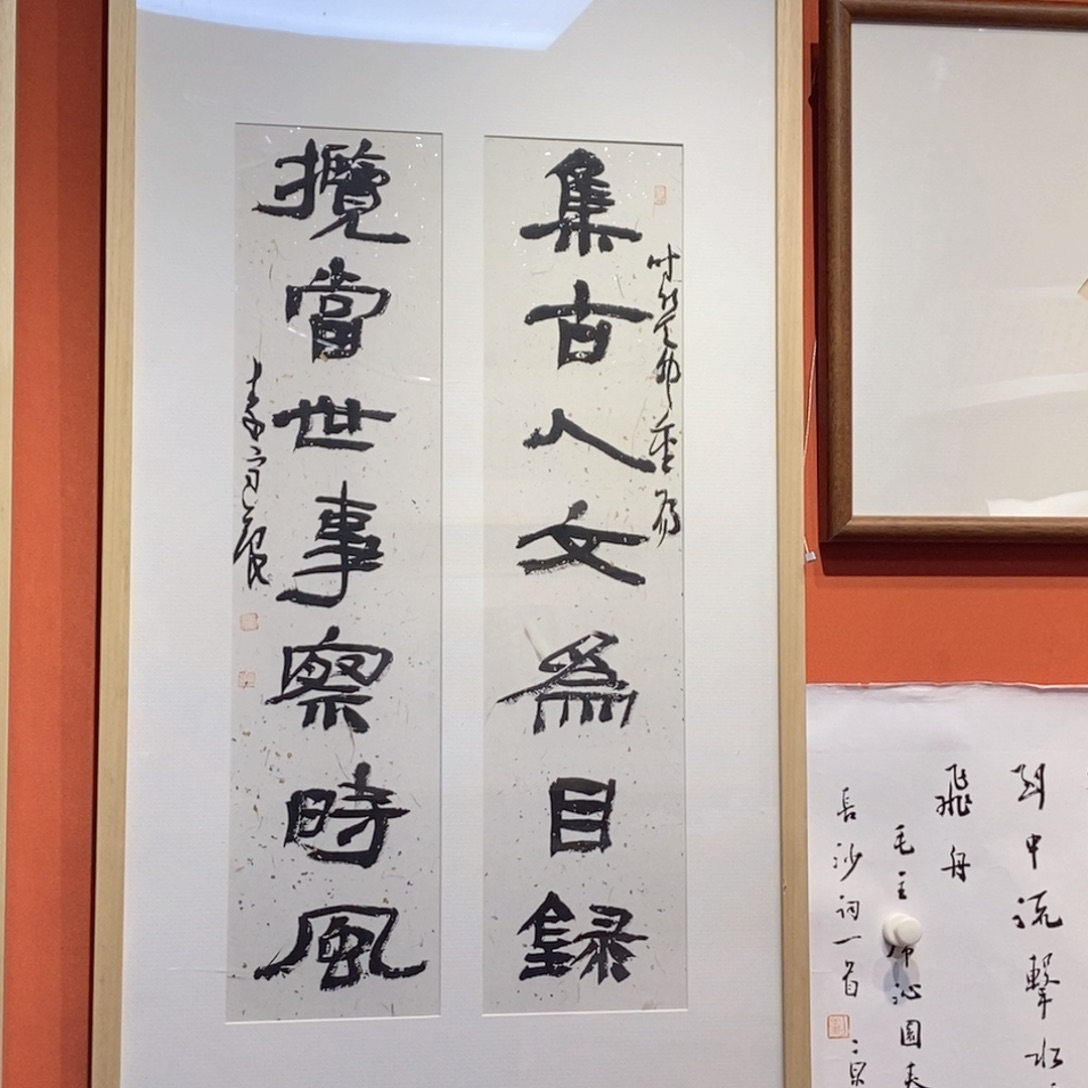 集古人文為目録
攬當世事察時風
到中流擊水
飛舟
毛主席沁園春
長沙詞一首